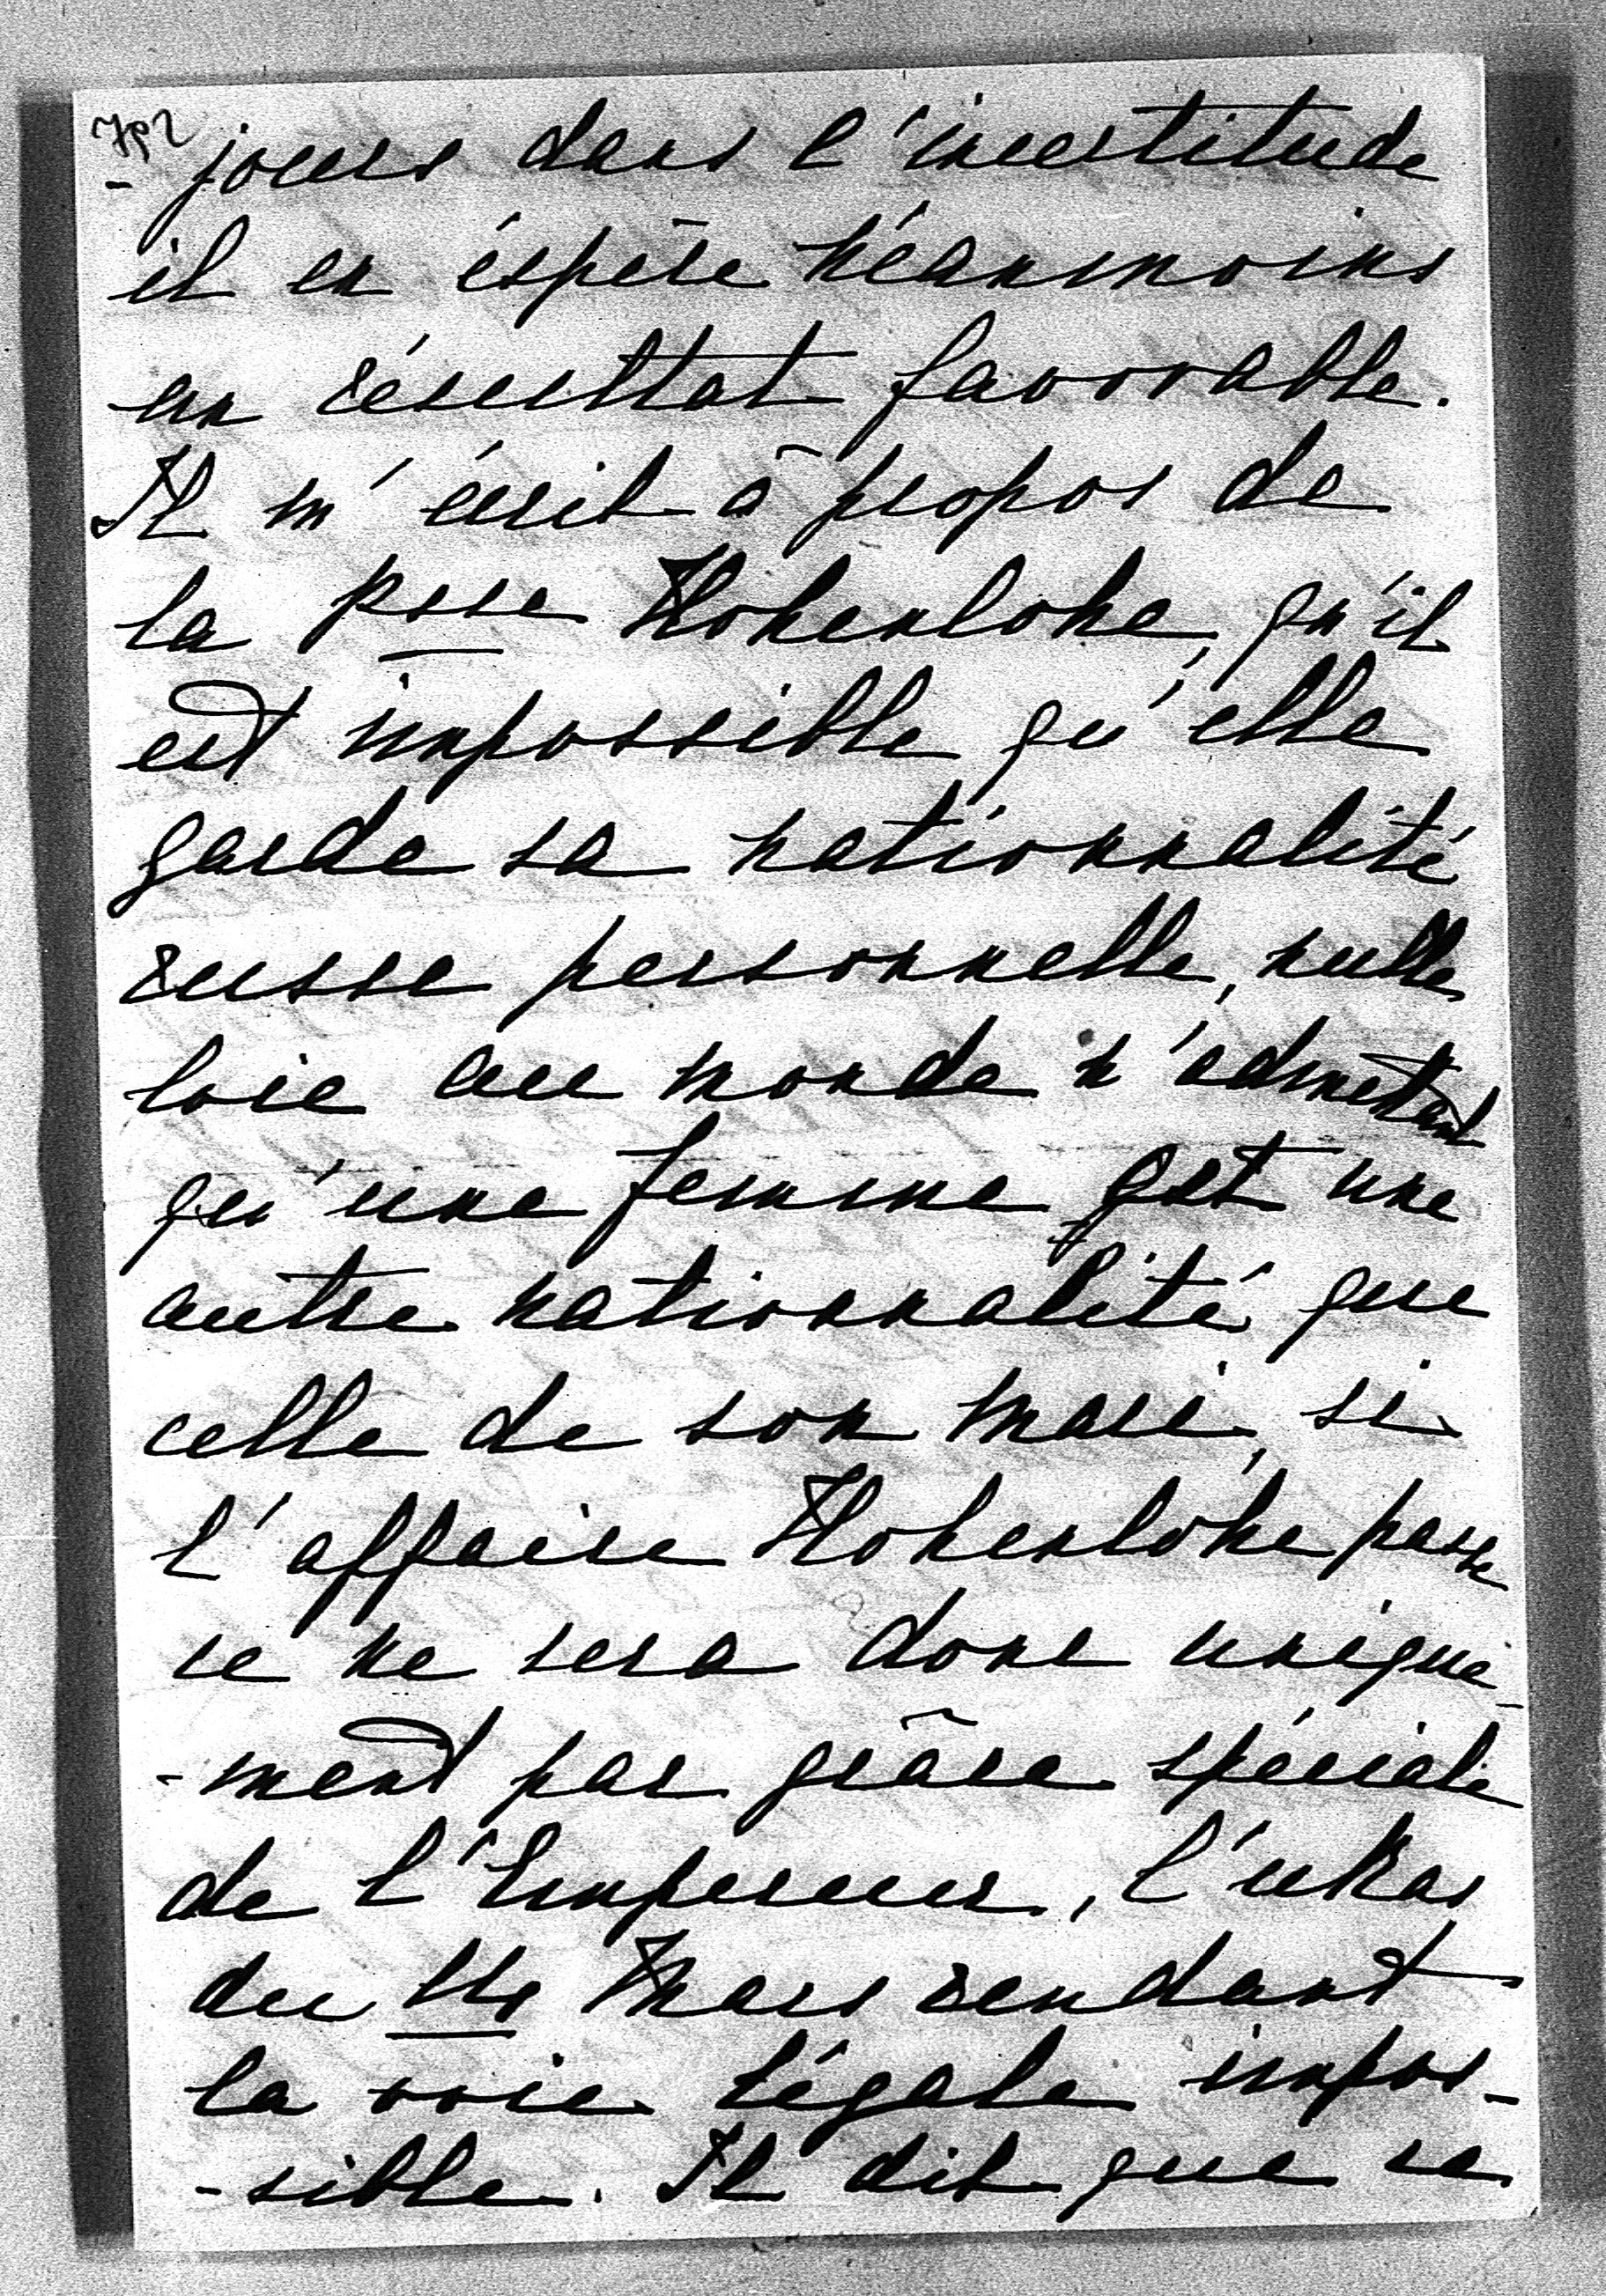 - jours dans l'incertitude
il en éspère néanmoins
un résulttat favorable.
Il m'écrit à propos de
la psse Hohenlohe, qu'il
est impossible qu'elle
garde sa nationnalité
russe personnelle, nulle
loie au monde n'admettant
qu'une femme ait une
autre nationnalité que
celle de son mari, si
l'affaire Hohenlohe passe
ce ne sera donc unique-
-ment par grâce spéciale
de l'Empereur, l'ukas
du Mars rendant
la voie légale impos-
-sible. Il dit que ce